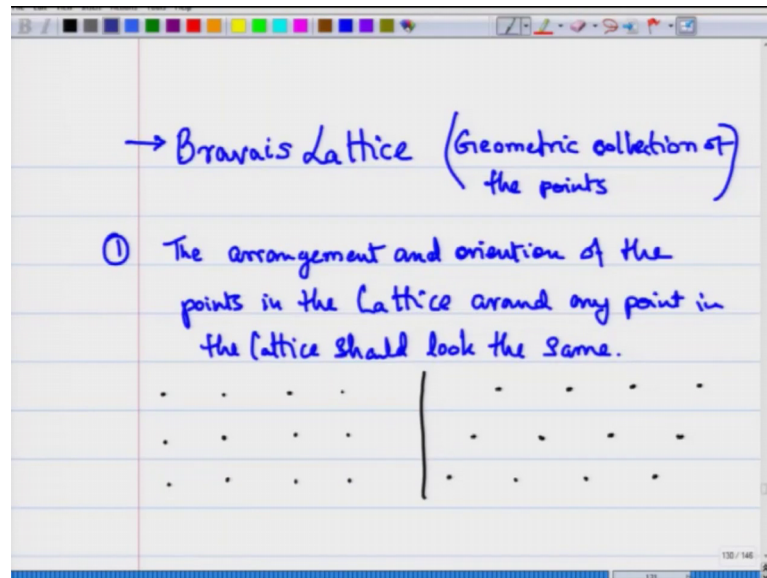 → Bravais Lattice (Geometric collection of
the points)
① The arrangement and oriention of the
points in the Lattice around any point in
the Lattice should look the same.
130 / 146